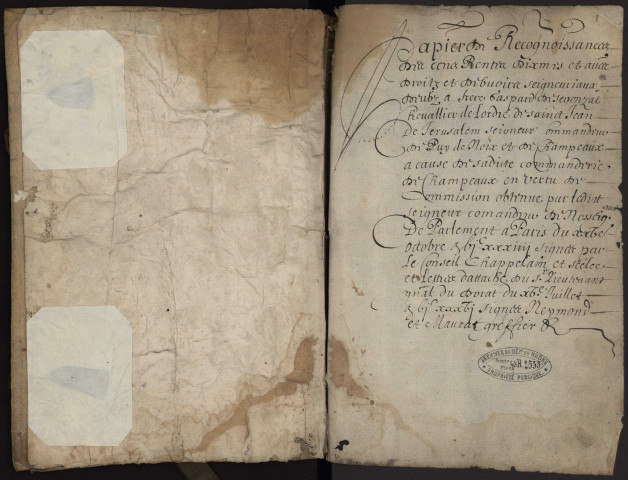 Papier de Recognoissances
des cens Rentes dixmes et autres
droitz et debvoirs seigneuriaux
deubz a frere Gaspard de
Chevallier de Lordre de sainct Jean
De Jerusalem seigneur commandeur
de Puy de Noix et de Champeaux
a cause de sadite commanderie
de Champeaux en vertu de
Commission obtenue par ledit
seigneur comandeur de Nosseig
De Parlement a Paris du
octobre xxxiiij signee par
Le Conseil Chappelain et scelee
et Lettres dattache du Sr Lieutenant
gnal du Dorat du Juillet
signee Reymond
et Maurat greffier
1
ARCHIVES DU DÉPt DU RHÔNE
48H.2555
PROPRIÉTÉ PUBLIQUE